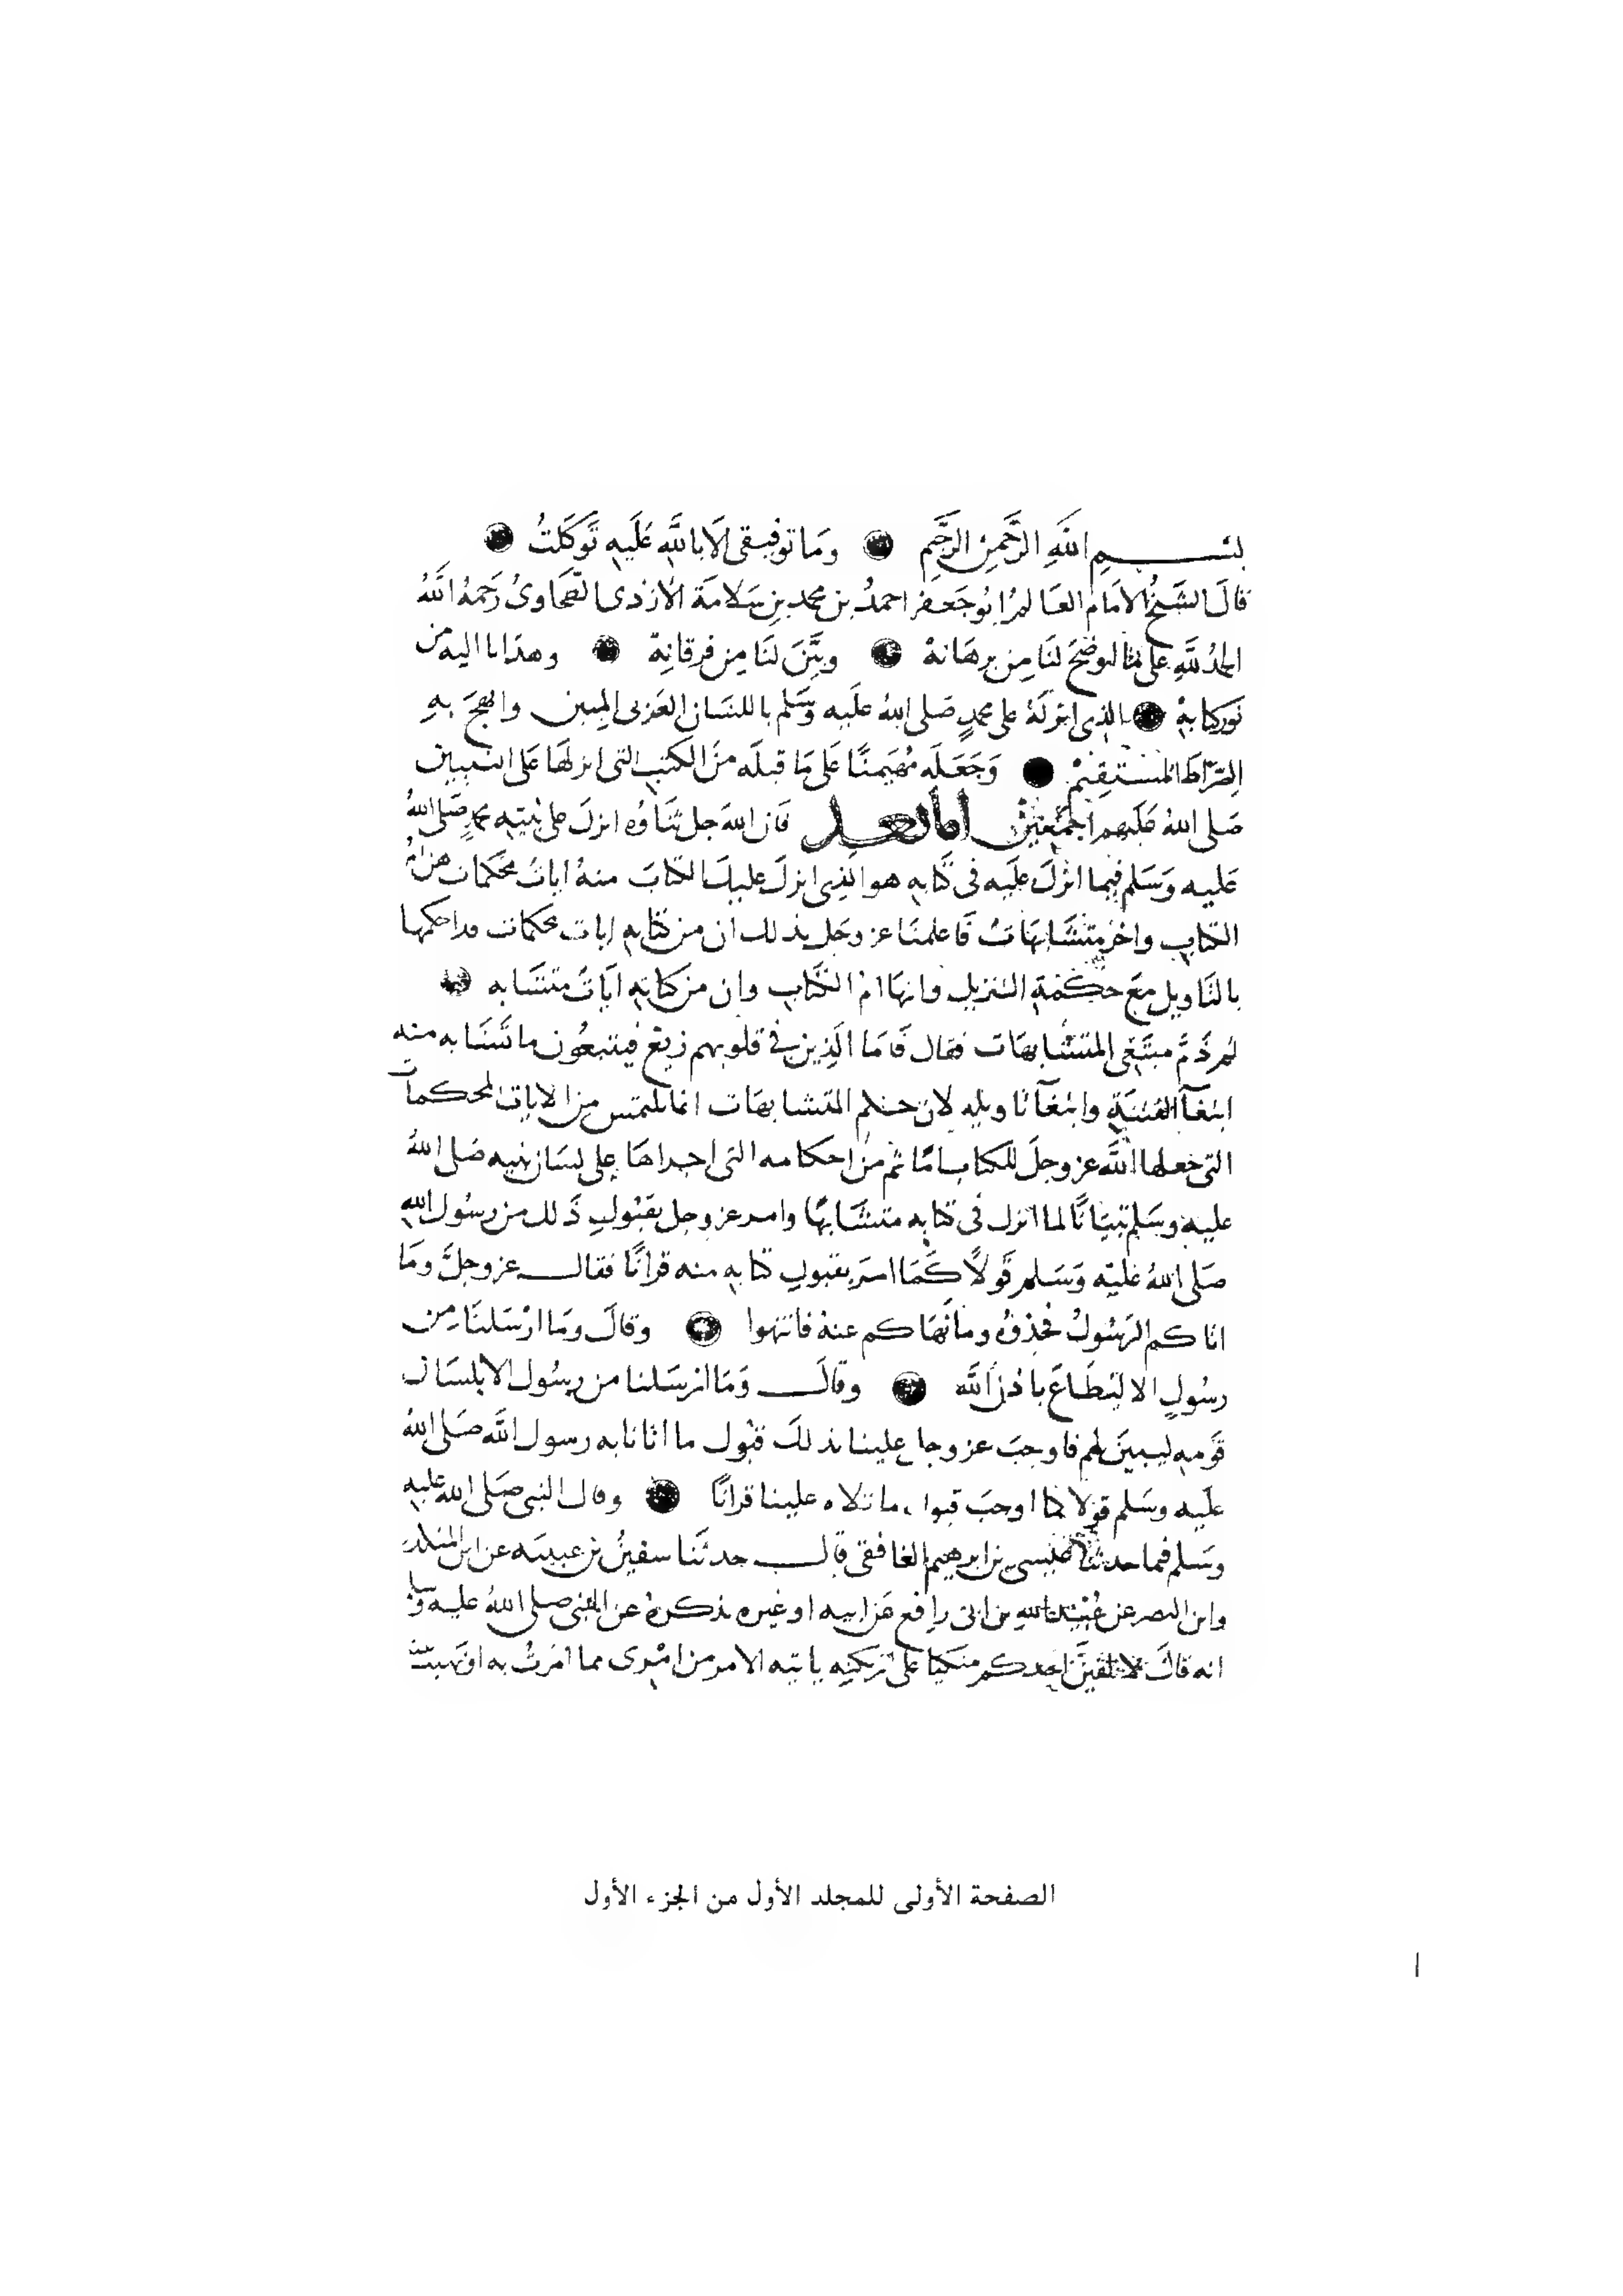 بسم اللهِ الرَّحْمنِ الرَّحيم وَمَا توفيقى الَا باللَّهِ عَلَيه تَوكَلتُ
قالَ الشَيخُ الامَام العَالمُ ابُو جَعفر احمدُ بن محمد بنِ سَلامَة الأزدى الطَحَاوىُ رَحمهُ اللَّهُ
الحمدُ للَّهِ على ما اوضَحَ لنَا مِن برهَانهْ وبيَّنَ لنَا مِن فرقانِهْ وهدَانا اليه من
نور كتابهْ الذى انزلَهُ على محمدٍ صَلى اللهُ عَلَيه وَسَلم باللسَان العَربى المبين وانهجَ بهِ
الصِّرَاطَ المُستَقيمْ وَجَعَلَه مُهَيمنًا عَلى مَا قبلَه منَ الكتبِ التى انزلهَا عَلى النبيين
صَلى اللهُ عَليهم اجمَعين امّا بعد فان اللهَ جل ثنَاؤه انزلَ على نبيّه محمدٍ صَلى اللهُ
عَليه وَسَلم فيما انزلَ عَلَيه فى كتابه هو الذى انزلَ عليكَ الكتابَ منهُ ايات محكمات هن ام
الكتاب واخر متشَابهَات فَاعلمنَا عز وجَل بذلك ان من كتابه ايات محكمات قد احكمها
بالتَاويل مَعَ حكمة التنزيل وانهَا ام الكتاب وان من كتابه ايَاتٌ متشَابه
ثم ذَمَّ مبتغى المتشَابهَات فقال فَامَا الَّذِين فى قلوبهم زيغ فيتبعُون ما تَشَابه منه
ابتغآ الفتنَة وابتغآ تاويله لان حكم المتشابهَات انما يلتمس من الايات المحكمات
التى جعلها اللَّه عز وجلَ للكتاب امًّا ثم من احكامه التى اجراهَا على لسَان نبيه صَلى اللهُ
عليه وسَلم تبيَانًا لما انزل فى كتابه متشَابهًا وامر عز وجل بقبُولِ ذَلك من رسُول اللهِ
صَلى اللهُ عَليه وَسَلم قَولاً كَمَا امرَ بقبولِ كتابه منه قرانًا فقال عز وجلَّ ومَا
اتاكم الرَسُولُ فخذوُه وما نَهَاكم عنهُ فانتهوا وقالَ ومَا ارْسَلنَا مِن
رسُولٍ الا ليُطَاعَ باذن اللَّه وقالَ وَمَا ارسَلنا من رسُول الا بلسَان
قَومه ليبينَ لهم فاوجبَ عز وجل علينا بذلكَ قبُول ما اتانا به رسول اللَّه صَلى اللهُ
عَليه وسَلم قولا كما اوجبَ قبول ما تلاه علينا قرانًا وقال النبى صَلى اللهُ عليه
وسَلم فيما حدثنا عيسى بن ابرهيم الغافقى قال حدثنا سفينُ بن عيينه عن ابن المنكدر
وابن النضر عن عُبَيد الله بن ابى رافع عَن ابيه او غيره يذكرهُ عن النبى صلى اللهُ عليه
انه قالَ لا الفينَّ احدكم متكيا على اريكته ياتيه الامر من امرى مما امرتُ به او نهيت
الصفحة الأولى للمجلد الأول من الجزء الأول